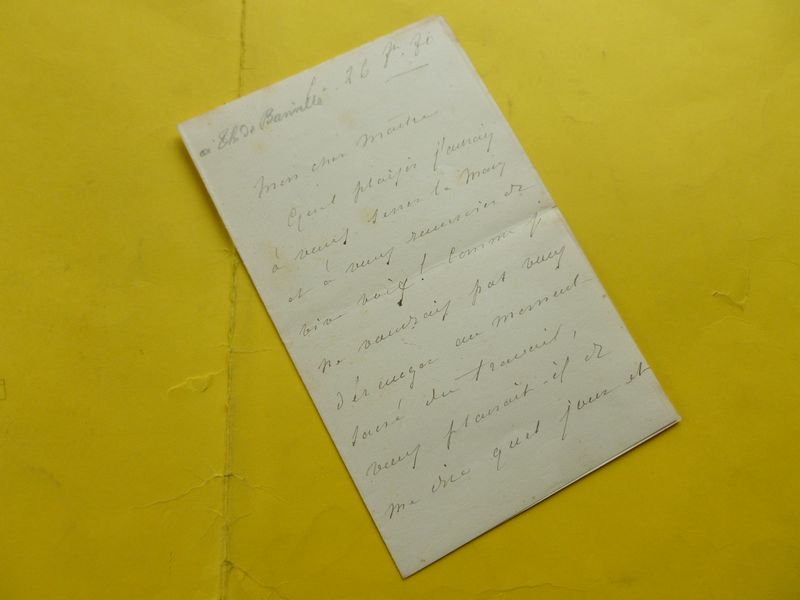 à Th de Banville 26
Mon cher Maître
Quel plaisir j'aurais
à vous serrer la main
et à vous remercier de
vive voix ! Comme je
ne voudrais pas vous
déranger au moment
sacré du travail,
vous plairait-il de
me dire quel jour et